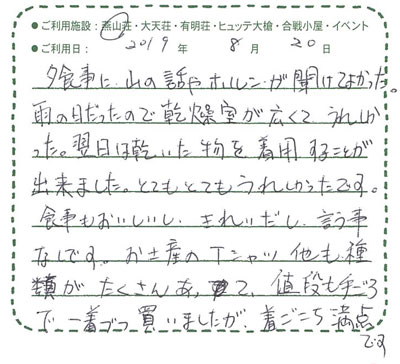 ●ご利用施設：燕山荘・大天荘・有明荘・ヒュッテ大槍・合戦小屋・イベント
●ご利用日： 2019 年 8 月 20 日
夕食事に、山の話やホルンが聞けてよかった。
雨の日だったので乾燥室が広くて、うれしか
った。翌日は乾いた物を着用することが
出来ました。とてもとてもうれしかったです。
食事もおいしいし、きれいだし、言う事
なしです。お土産のTシャツ他も、種
類がたくさんあって、値段も手ごろ
で、一着づつ買いましたが、着ごこち満点
です